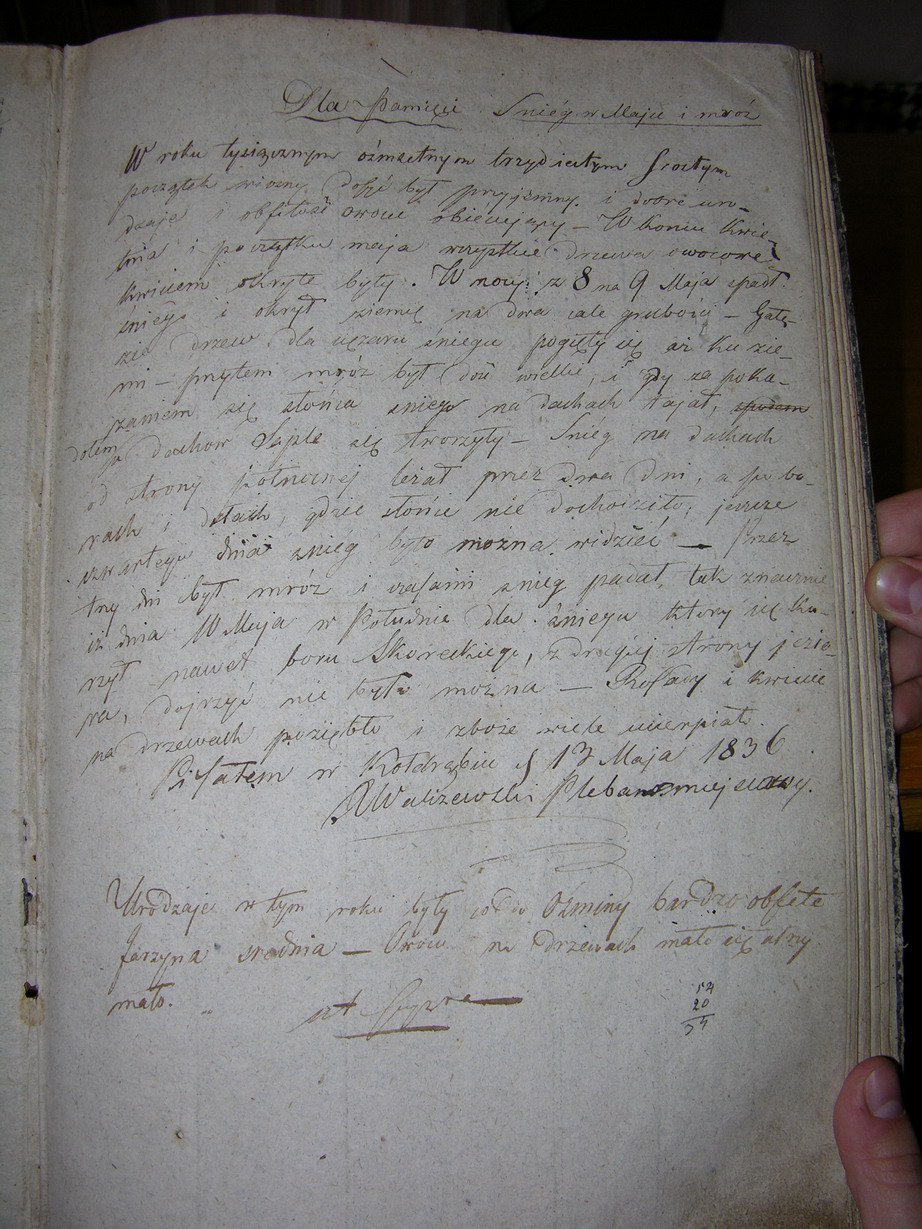 Dla Pamięci Snieg w Maju i mróz
W roku tysiącznym ośmsetnym trzydziestym szostym
początek wiosny dosyć był przyjemny i dobre uro-
dzaje i obfitość owocu obiecujący — W koncu Kwie-
tnia i początku maja wszystkie drzewa owocowe
kwieciem okryte były. W nocy z 8 na 9 Maja spadł
śnieg i okrył ziemię na dwa cale grubości — Gałę-
zie drzew dla ciężaru śniegu pogięły się aż ku zie-
mi — przytem mróz był dość wielki, i gdy za poka-
zaniem się słońca snieg na dachach tajał,
dołem z dachow Sople się tworzyły — Snieg na dachach
od strony północnej leżał przez dwa dni, a po bo-
rach i dołach, gdzie słońce nie dochodziło, jeszcze
czwartego dnia snieg było można widzieć — Przez
trzy dni był mróz i czasami snieg padał, tak znacznie
iż dnia Maja w Południe dla śniegu ktory się ku-
rzył nawet boru Skoreckiego, z drugiej strony jezio-
ra, dojrzyć nie było można — Rośliny i kwiecie
na drzewach poziębło i zboże wiele ucierpiało.
Pisałem w Kołdrąbiu d 13 Maja 1836.
XWaliszewski Pleban miejscowy.
Urodzaje w tym roku były co do Oźminy bardzo obfite
Jarzyna srednia — Owocu na drzewach mało
mało.
ut Supra
54
20
34